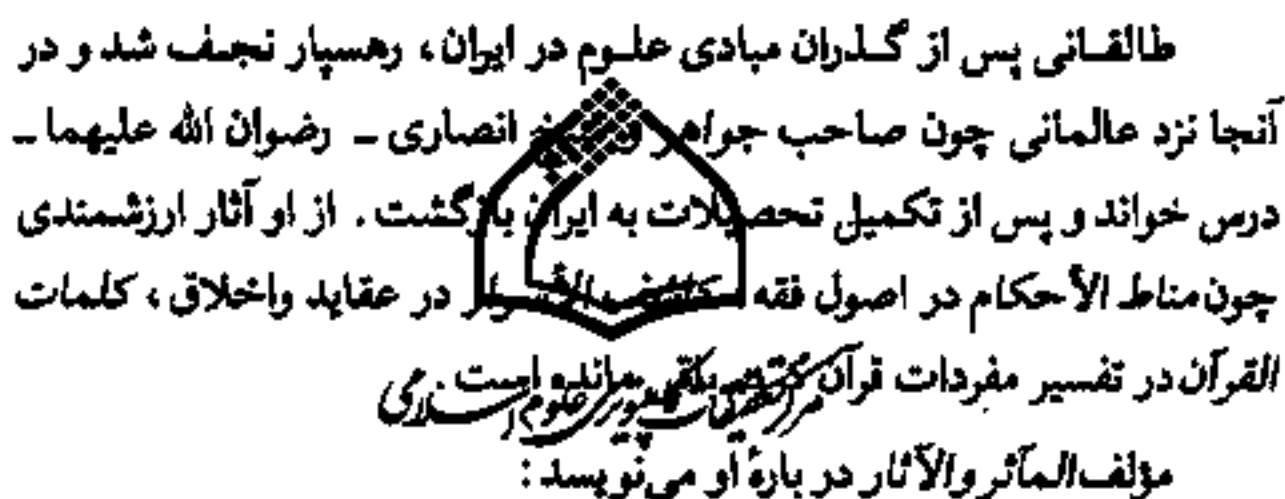 طالقانی پس از گذران مبادی علوم در ایران، رهسپار نجف شد و در
آنجا نزد عالمانی چون صاحب جواهر و شیخ انصاری ـ رضوان الله علیهما ـ
درس خواند و پس از تکمیل تحصیلات به ایران بازگشت. از او آثار ارزشمندی
چون مناط الأحکام در اصول فقه، کاشف الأسرار در عقاید واخلاق، کلمات
القرآن در تفسیر مفردات قرآن باقی مانده است.
مرکز تحقیقات کامپیوتری علوم اسلامی
مؤلف المآثر والآثار در بارهٔ او می‌نویسد: